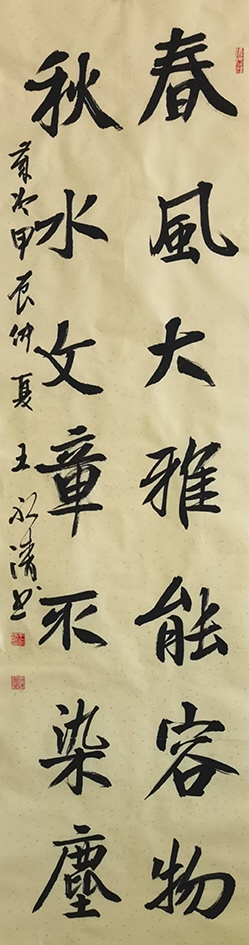 春風大雅能容物
秋水文章不染塵
歲次甲辰仲夏王永清书